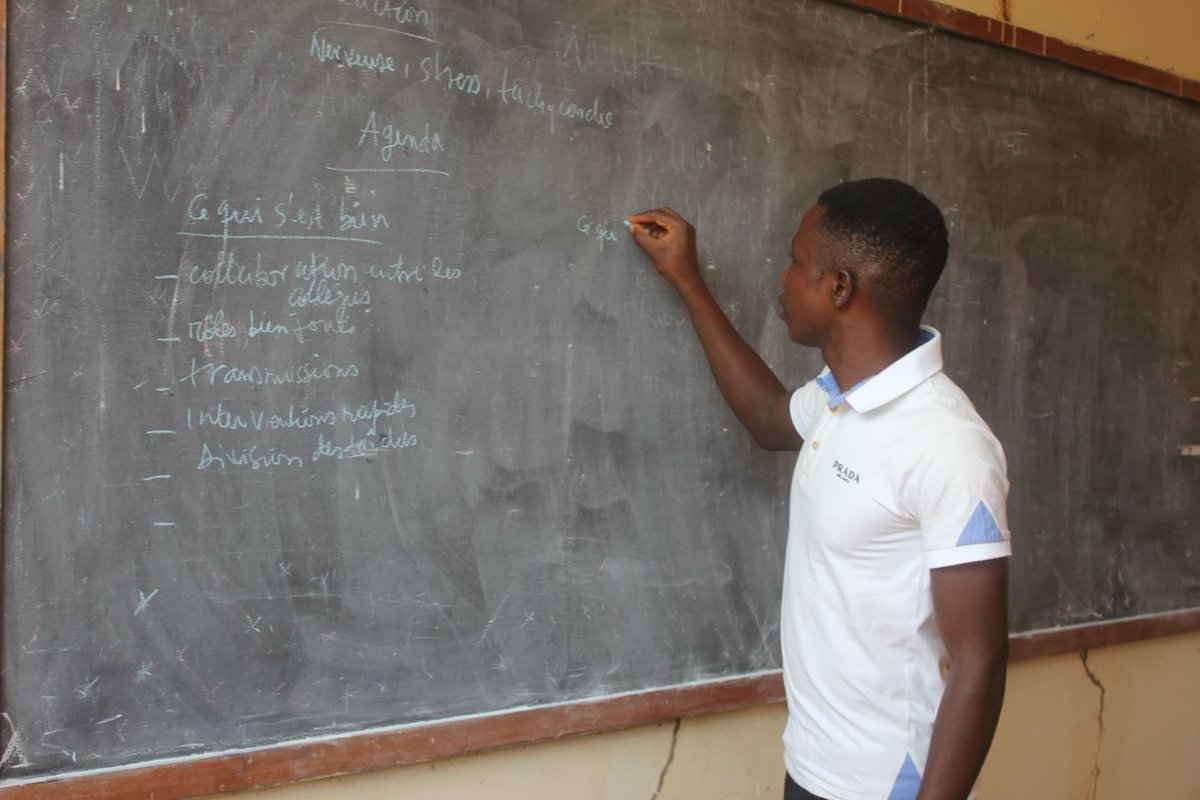 Nerveuse, stress, tachycardie
Agenda
Ce qui s'est bien
- collaboration entre les
collègues
- rôles bien joués
- transmissions
- Interventions rapides
- Division des tâches
-
Ce qui
PRADA
MILANO